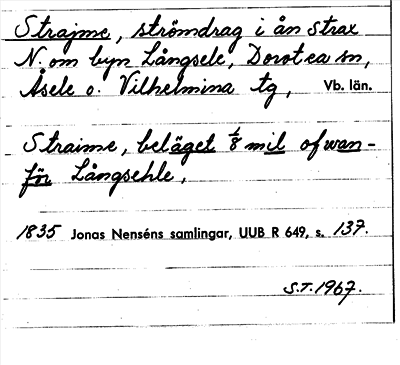 Strajme, strömdrag i ån strax
N. om byn Långsele, Dorotea sn,
Åsele o. Vilhelmina tg, Vb. län.
Straime, beläget 1/8 mil ofwan-
för Långsehle,
1835 Jonas Nenséns samlingar, UUB R 649, s. 137.
S.T. 1967.